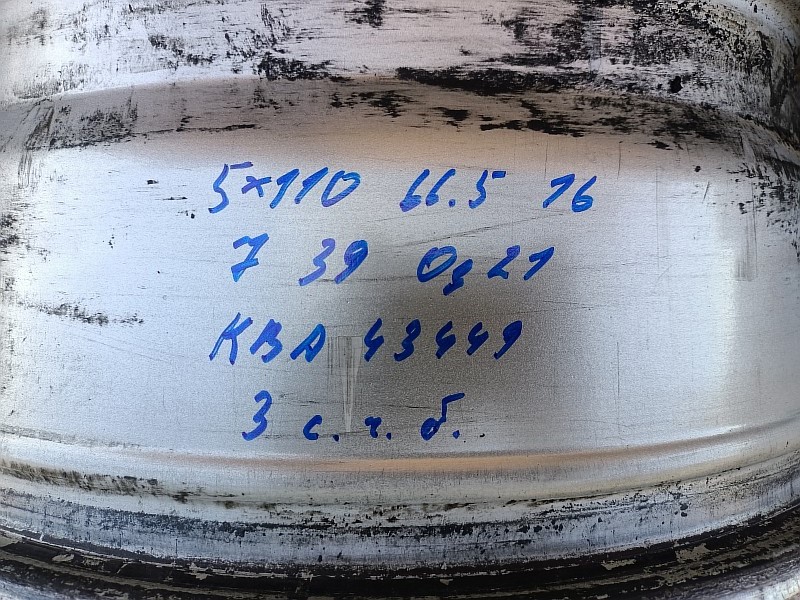 5×110 66.5 16
7 39 Оз 21
КВА 43449
3 с. г. б.